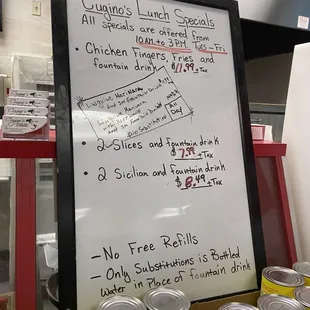 Cugino's Lunch Specials
All specials are offered from
10AM to 3PM Tues-Fri
• Chicken Fingers, Fries and
fountain drink
$11.99 + Tax
• 2 Slices and fountain drink
$7.99 + Tax
• 2 Sicilian and fountain drink
$8.49 + Tax
- No Free Refills
- Only Substitutions is Bottled
Water in Place of fountain drink